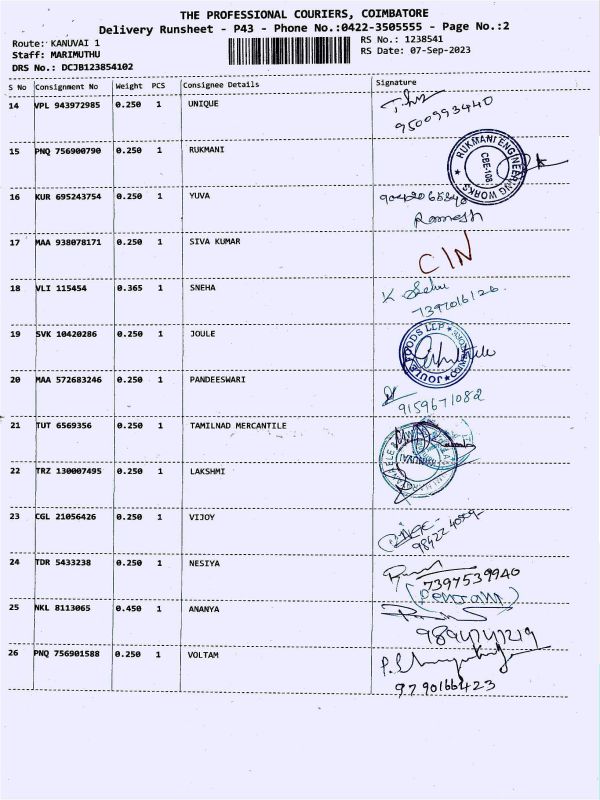 THE PROFESSIONAL COURIERS, COIMBATORE
Delivery Runsheet - P43 - Phone No.:0422-3505555 - Page No.:2
Route: KANUVAI 1
RS No.: 1238541
Staff: MARIMUTHU
RS Date: 07-Sep-2023
DRS No.: DCJB123854102
S No Consignment No Weight PCS Consignee Details Signature
14 VPL 943972985 0.250 1 UNIQUE
9500993440
15 PNQ 756900790 0.250 1 RUKMANI
RUKMANI ENGINEERING WORKS
CBE-108
16 KUR 695243754 0.250 1 YUVA
Ramesh
17 MAA 938078171 0.250 1 SIVA KUMAR
CIN
18 VLI 115454 0.365 1 SNEHA
7397016126
19 SVK 10420286 0.250 1 JOULE
JOULE FOODS LLP
20 MAA 572683246 0.250 1 PANDEESWARI
9159671082
21 TUT 6569356 0.250 1 TAMILNAD MERCANTILE
22 TRZ 130007495 0.250 1 LAKSHMI
23 CGL 21056426 0.250 1 VIJOY
24 TDR 5433238 0.250 1 NESIYA
7397539940
25 NKL 8113065 0.450 1 ANANYA
26 PNQ 756901588 0.250 1 VOLTAM
9790166423